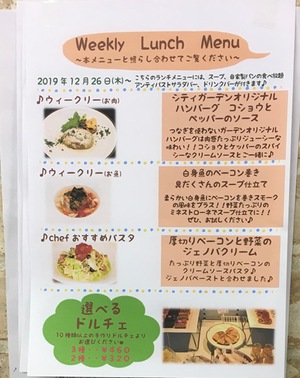 Weekly Lunch Menu
～本メニューと照らし合わせてご覧ください～
2019年12月26日(木)～
こちらのランチメニューには、スープ、自家製パンの食べ放題
アンティパストサラダバー、ドリンクバーが付きます♪
♪ウィークリー(お肉)
シティガーデンオリジナル
ハンバーグ コショウと
ペッパーのソース
つなぎを使わないガーデンオリジナル
ハンバーグは肉感たっぷりジューシーな
味わい！！コショウとケッパーのスパイ
シーなクリームソースとご一緒に♪
♪ウィークリー(お魚)
白身魚のベーコン巻き
具だくさんのスープ仕立て
柔らかい白身魚にベーコンを巻きスモーク
の風味をプラス！！野菜たっぷりの
ミネストローネでスープ仕立てに！！
ぜひ、お試しください♪
♪chefおすすめパスタ
厚切りベーコンと野菜の
ジェノバクリーム
たっぷり野菜と厚切りベーコンの
クリームソースパスタ♪
ジェノバペーストと合わせました♪
選べる
ドルチェ
10種類以上の手作りドルチェより
お選びください
3種・・¥460
2種・・¥320